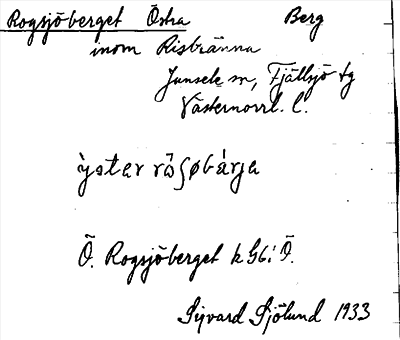 Rogsjöberget Östra Berg
inom Risbränna
Junsele sn, Fjällsjö tg
Västernorrl. l.
Ö. Rogsjöberget k Gbi Ö.
Sigvard Sjölund 1933